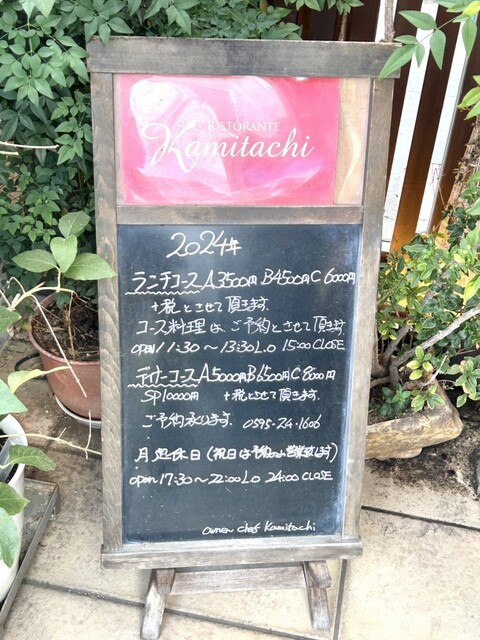 RISTORANTE
Kamitachi
2024年
ランチコース A3500円 B4500円 C6000円
+税とさせて頂きます
コース料理は、ご予約とさせて頂きます
OPEN 11:30〜13:30L.O 15:00 CLOSE
ディナーコース A5000円 B6500円 C8000円
SP10000円 +税とさせて頂きます
ご予約承ります. 0595-24-1606
月定休日(祝日は予約のみ営業致します)
open 17:30〜22:00LO 24:00 CLOSE
Owner chef Kamitachi